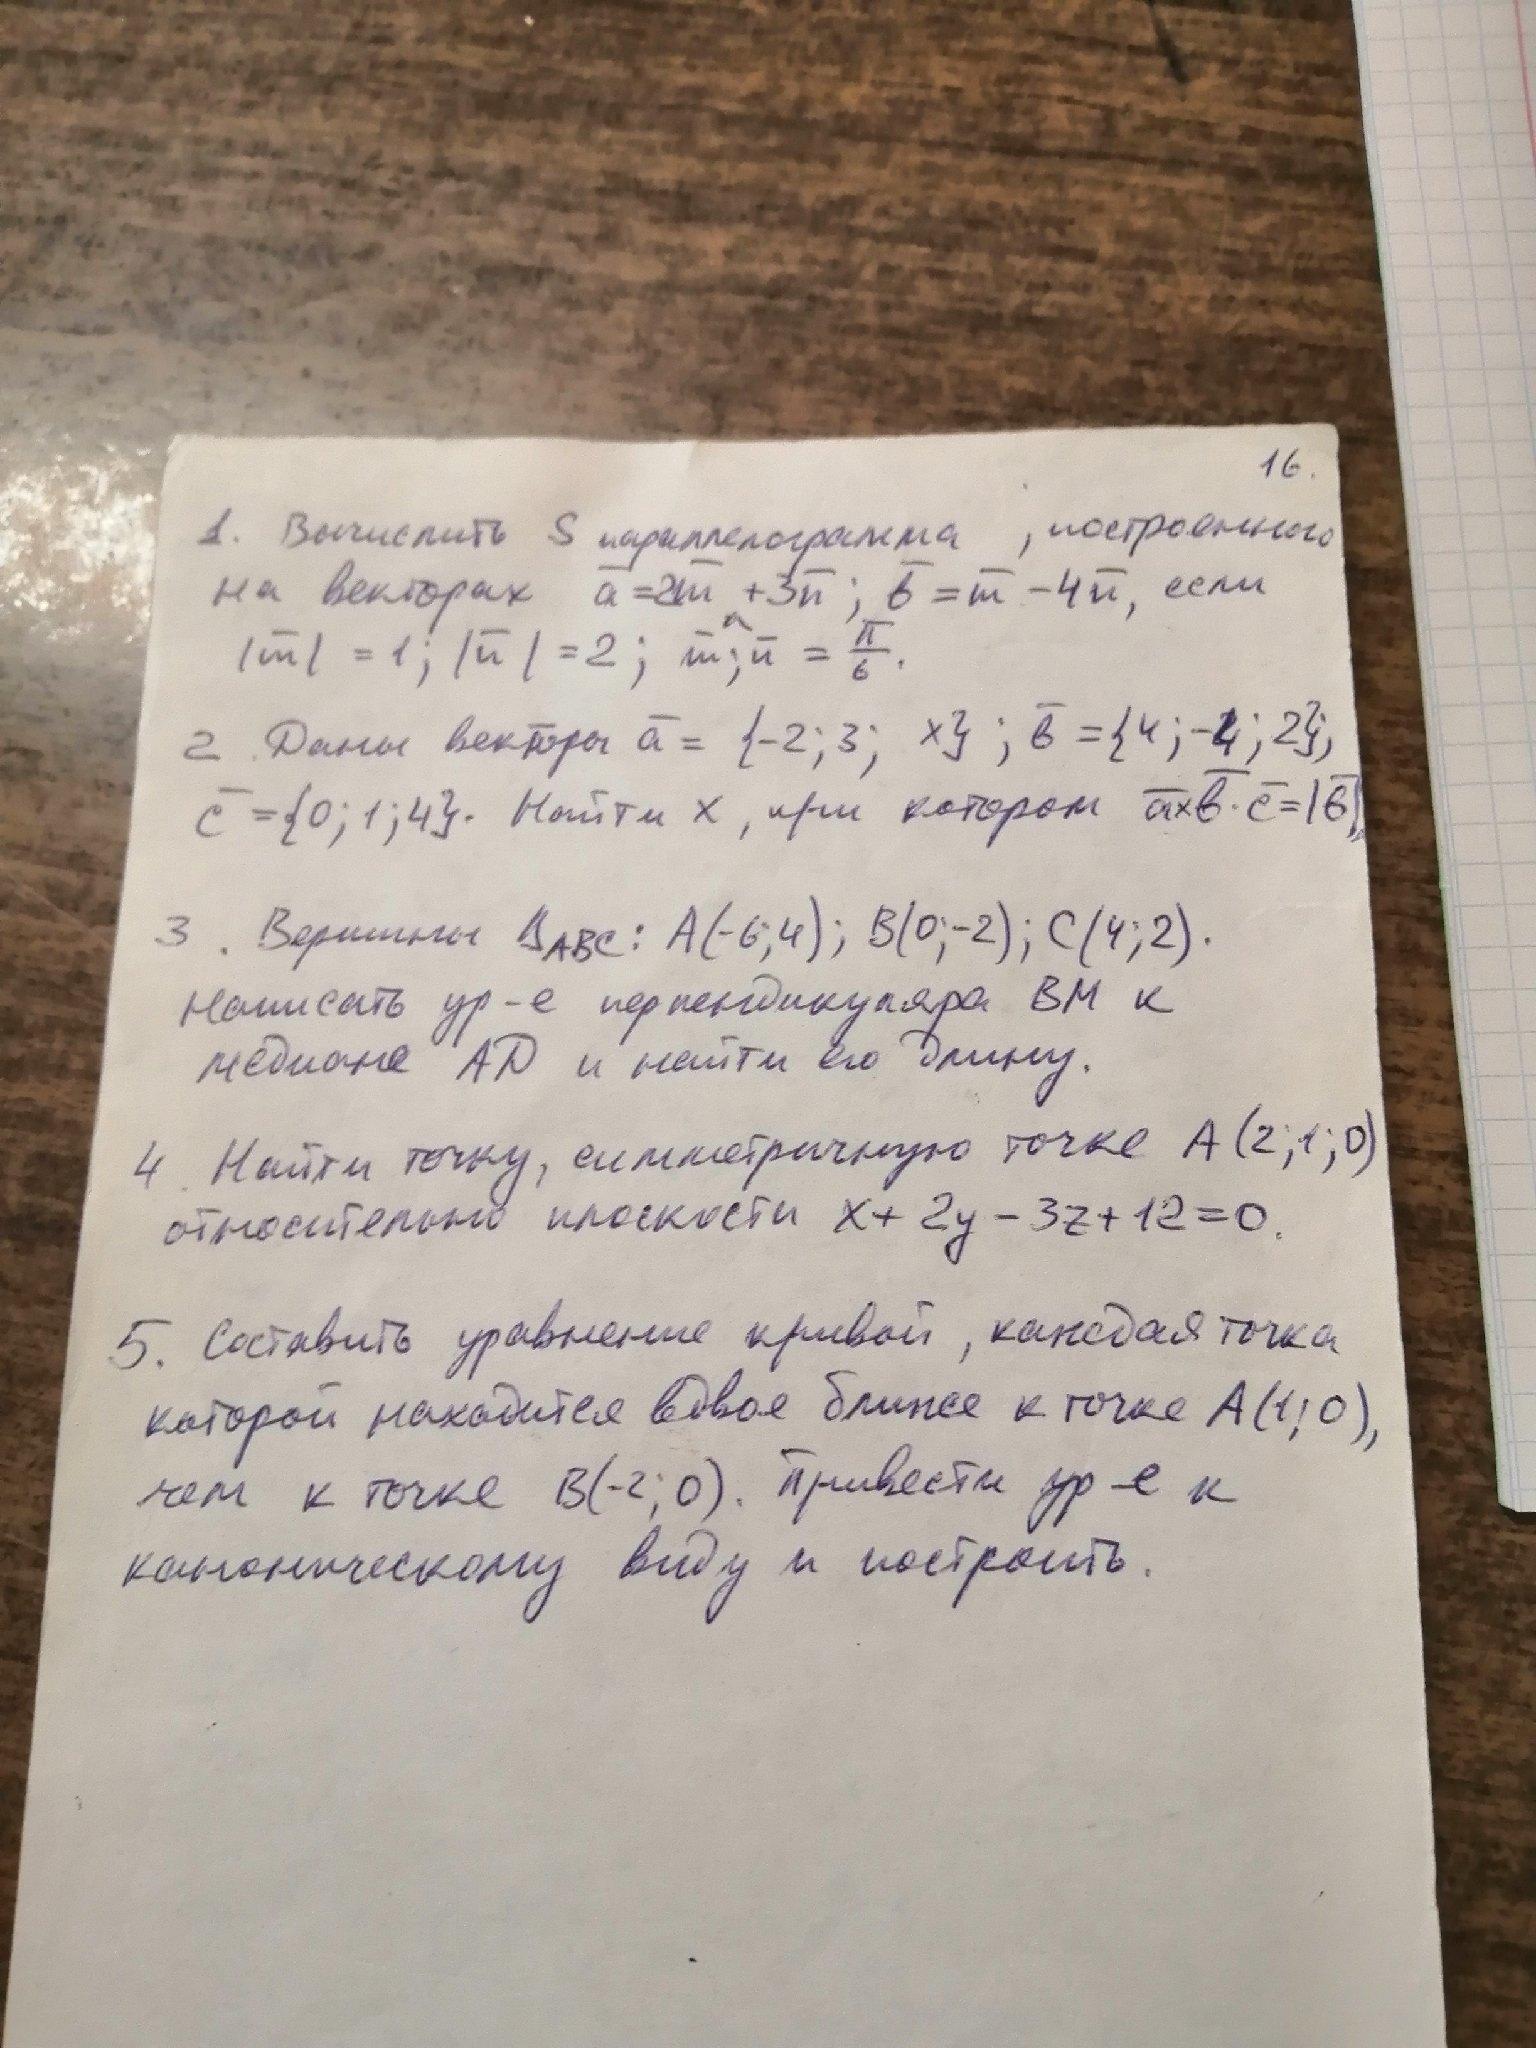 16.
1. Вычислить S параллелограмма, построенного
на векторах a̅=2m̅+3n̅; b̅=m̅-4n̅, если
|m̅|=1; |n̅|=2; m̅;^n̅=π/6.
2. Даны векторы a̅={-2;3; x}; b̅={4;-4;2};
c̅={0;1;4}. Найти x, при котором a̅×b̅·c̅=|b̅|.
3. Вершины Δ ABC: A(-6;4); B(0;-2); C(4;2).
Написать ур-е перпендикуляра BM к
медиане AD и найти его длину.
4. Найти точку, симметричную точке A(2;1;0)
относительно плоскости x+2y-3z+12=0.
5. Составить уравнение кривой, каждая точка
которой находится вдвое ближе к точке A(1;0),
чем к точке B(-2;0). Привести ур-е к
каноническому виду и построить.